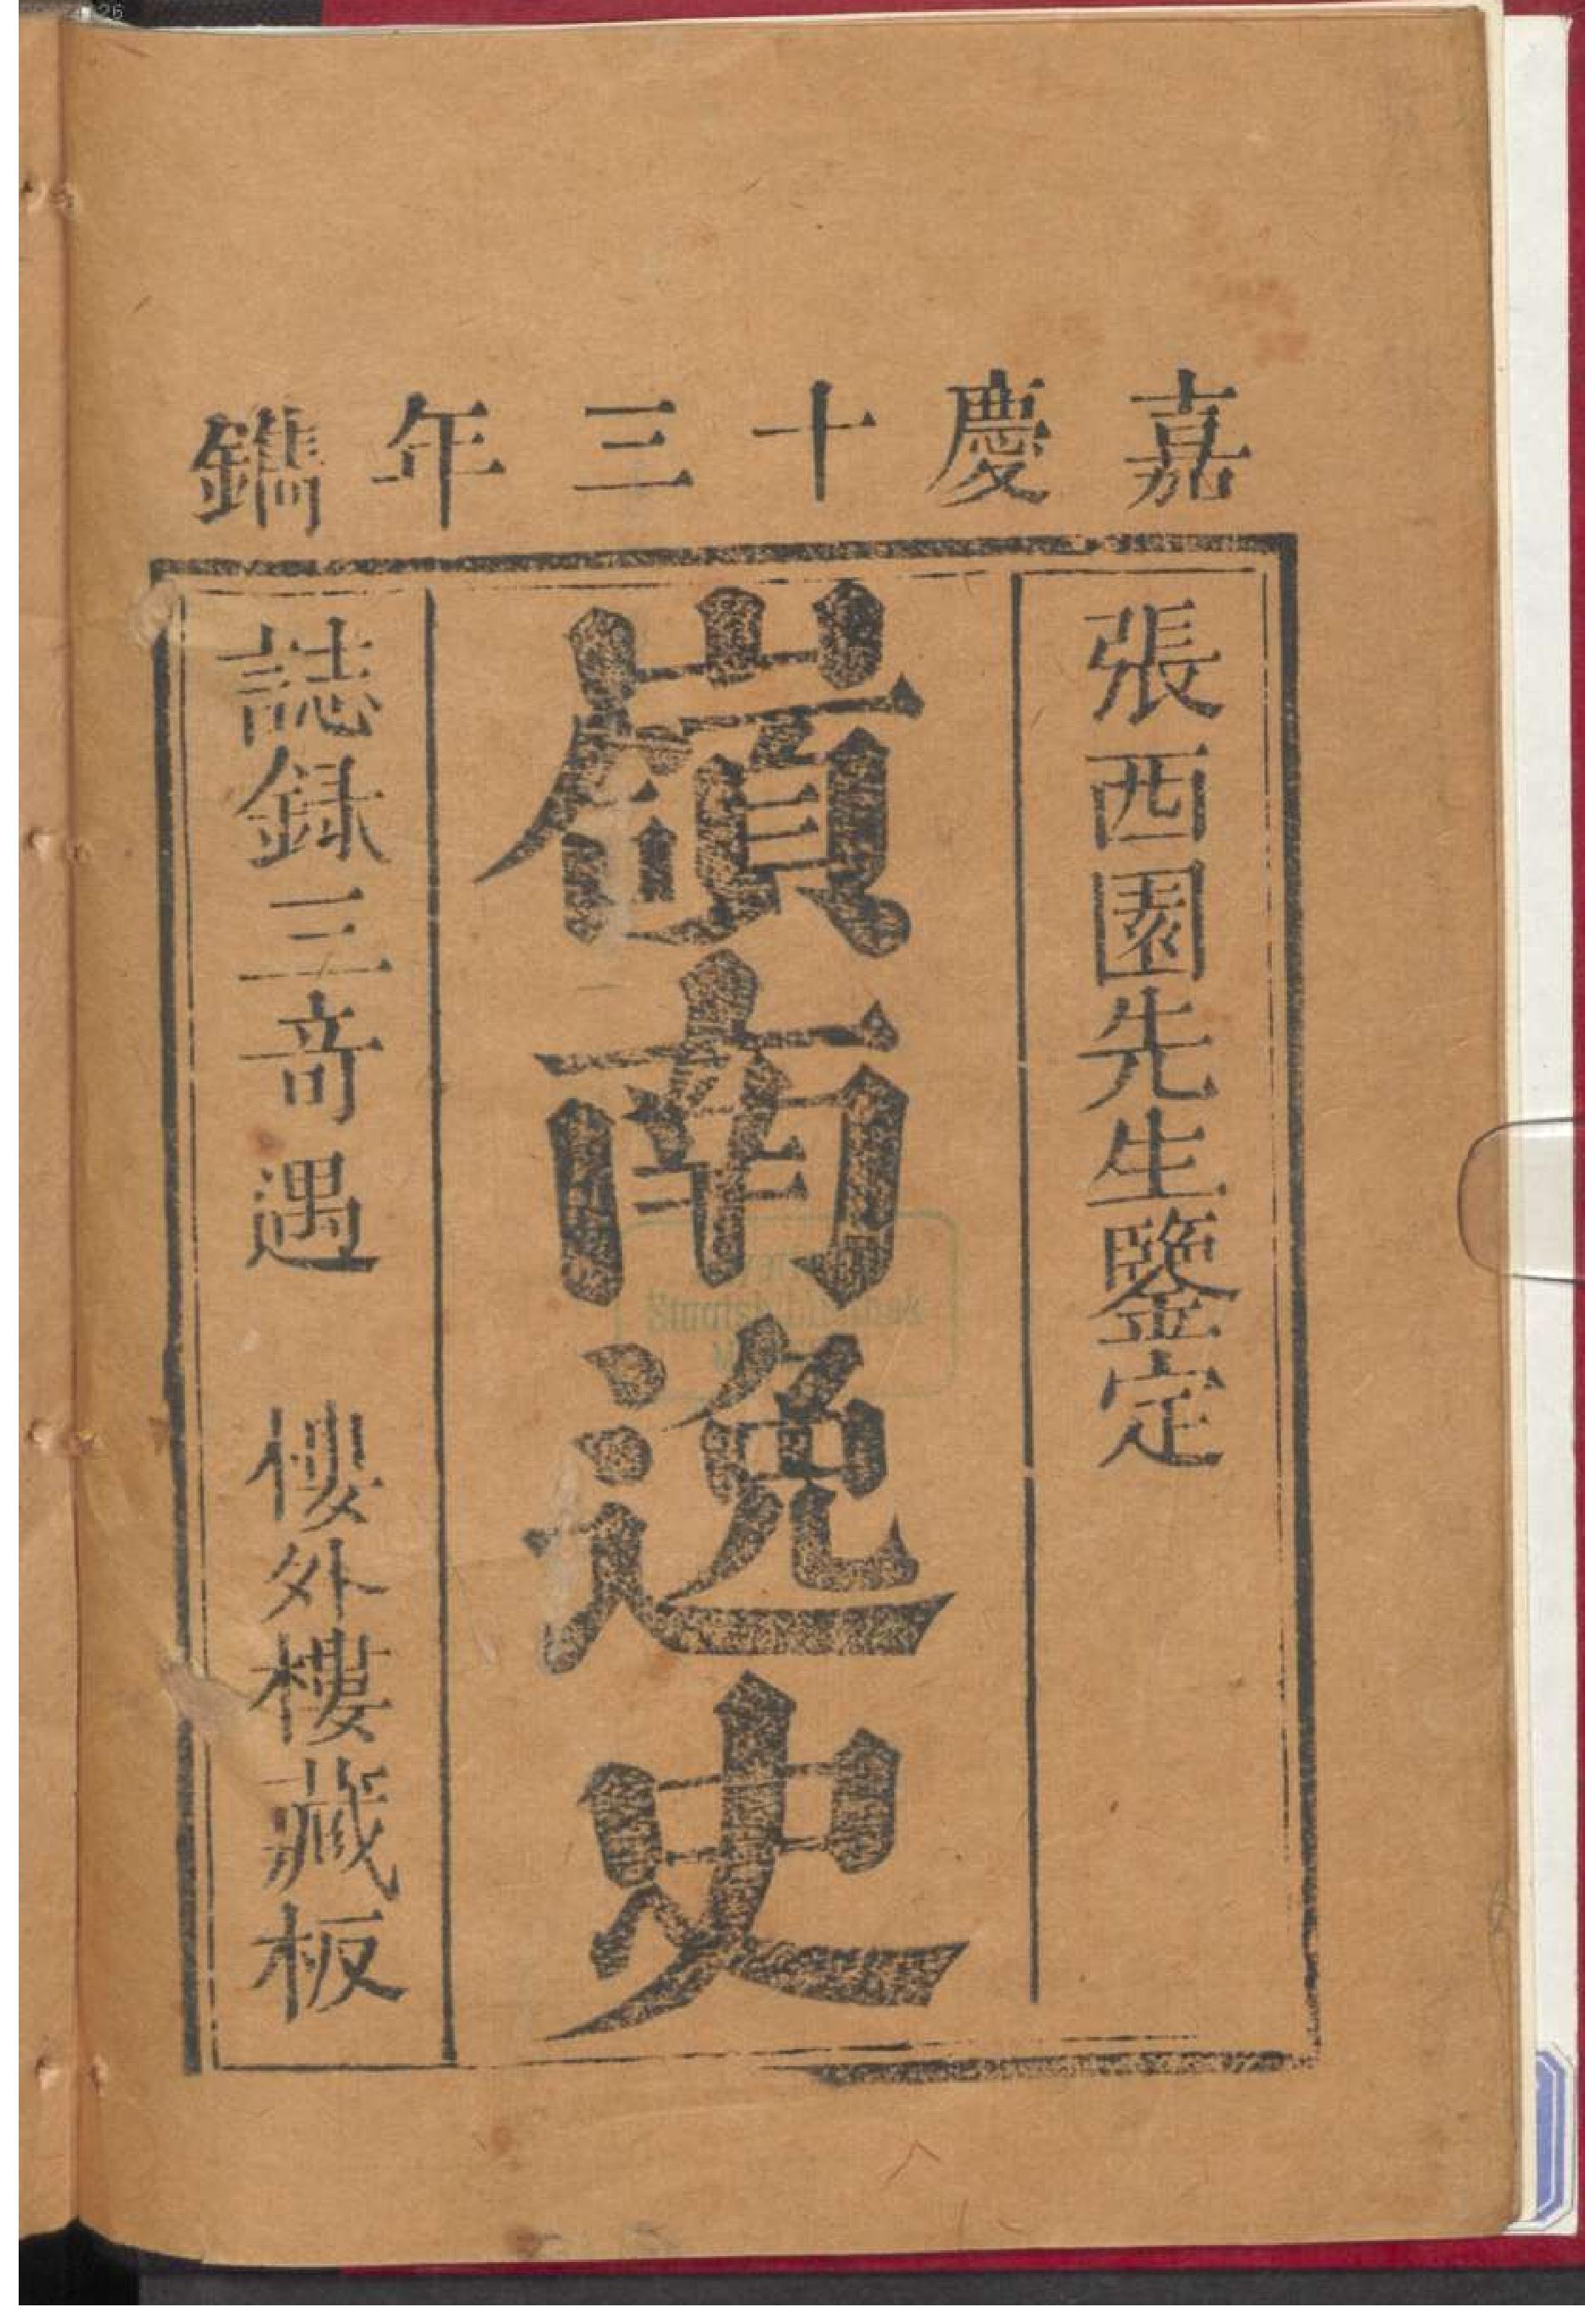 嘉慶十三年鐫
張西園先生鑒定
嶺南逸史
誌録三竒遇
樓外樓藏板